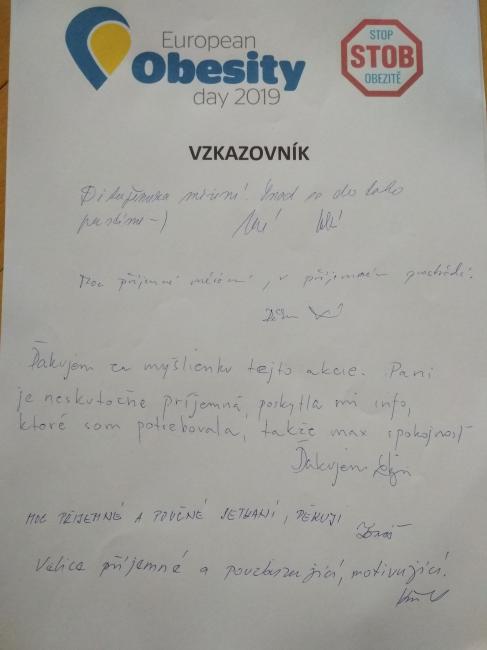 European
Obesity
day 2019
STOP
STOB
OBEZITĚ
VZKAZOVNÍK
měření! Snad se do toho
Moc příjemné měření, v příjemném prostředí.
Ďakujem za myšlienku tejto akcie. Pani
je neskutočne príjemná, poskytla mi info,
ktoré som potrebovala, takže max spokojnosť
Ďakujem
MOC PŘÍJEMNÉ A POUČNÉ SETKANÍ, DĚKUJI
Tomáš
Velice příjemné a povzbuzující, motivující.